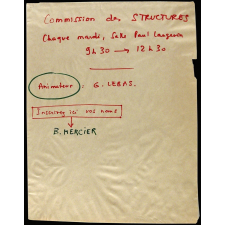 Commission des STRUCTURES
Chaque mardi, Salle Paul Langevin
9h30 → 12h30
Animateur : G. LEBAS.
Inscrivez ici vos noms
B. MERCIER